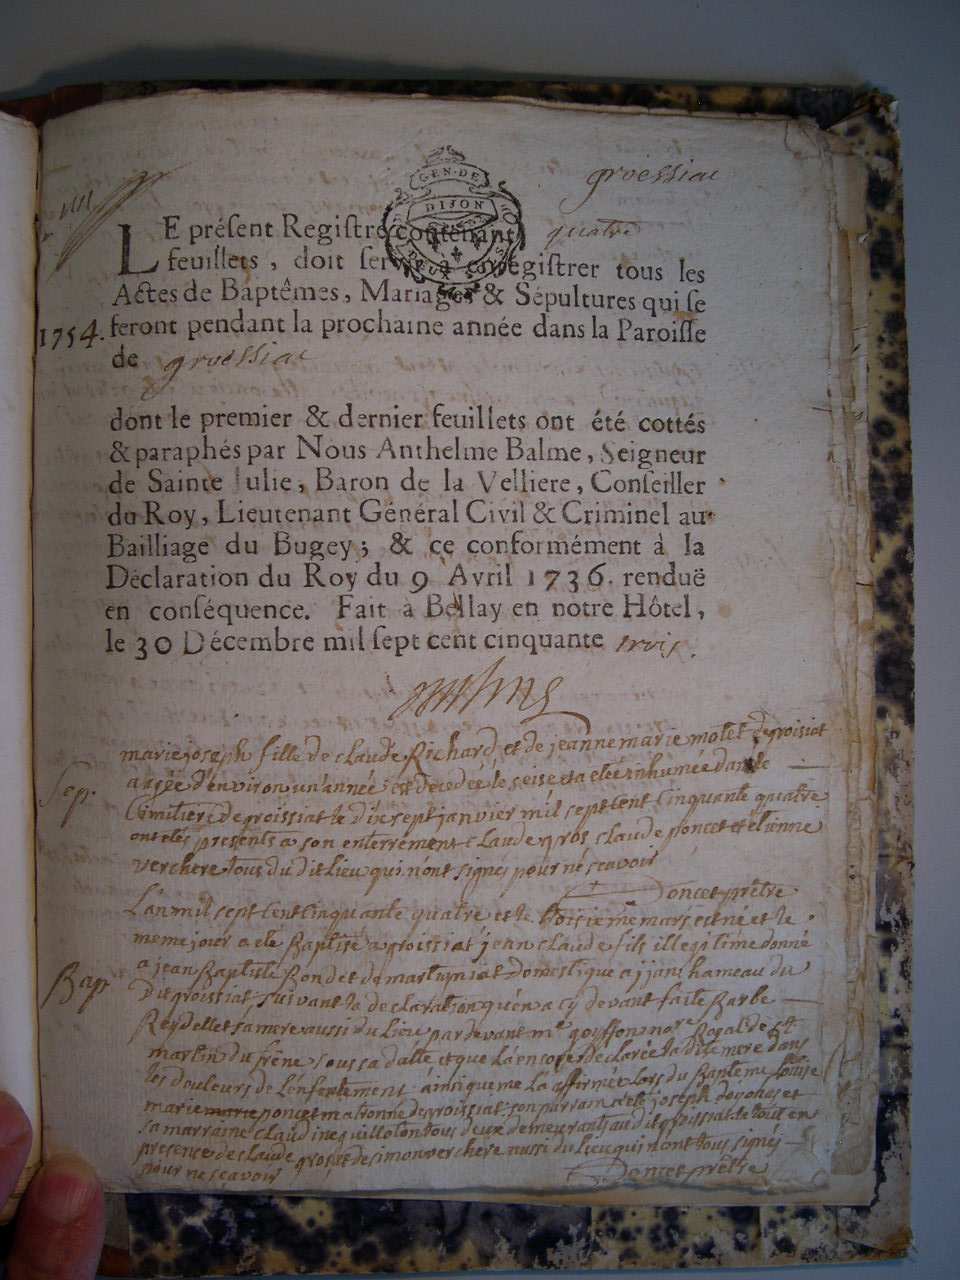 groessiac
GEN. DE
DIJON
DEUX SOLS
LE préſent Regiſtre contenant quatre
feuillets, doit ſervir à enregiſtrer tous les
Actes de Baptêmes, Mariages & Sépultures qui ſe
1754. feront pendant la prochaine année dans la Paroiſſe
de groessiac
dont le premier & dernier feuillets ont été cottés
& paraphés par Nous Anthelme Balme, Seigneur
de Sainte Julie, Baron de la Velliere, Conſeiller
du Roy, Lieutenant Général Civil & Criminel au
Bailliage du Bugey; & ce conformément à la
Déclaration du Roy du 9 Avril 1736. renduë
en conſéquence. Fait à Bellay en notre Hôtel,
le 30 Décembre mil ſept cent cinquante trois.
marie joseph fille de claude Richard et de jeanne marie molet de groissiat
Sep. agée d'environ un année est decedée le seise et a eté inhumée dans le
cimitiere de groissiat le dix sept janvier mil sept cent cinquante quatre
ont etés presents a son enterrement claude gros claude poncet et etienne
verchere tous du dit lieu qui n'ont signés pour ne scavoir
Poncet prêtre
L'an mil sept cent cinquante quatre et le troisieme mars est né et le
meme jour a eté Baptisé a groissiat jean claude fils illegitime donné
a jean Baptiste Rondet de martignat domestique a jjan hameau du
Bap dit groissiat suivant la declaration qu'en a cy devant faite Barbe
Reydellet sa mere aussi du lieu par devant me gouffon nore Royal de st
martin du frêne sous sa datte et que l'a encore declarée la dite mere dans
les douleurs de l'enfentement ainsi que me la affirmée lors du Baptême louise
marie marie poncet matronne de groissiat: son parrain a eté joseph
sa marraine claudine guilloton tous deux demeurants au dit groissiat le tout en
presence de claude gros et de simon verchere aussi du lieu qui n'ont tous signés
pour ne scavoir Poncet prêtre